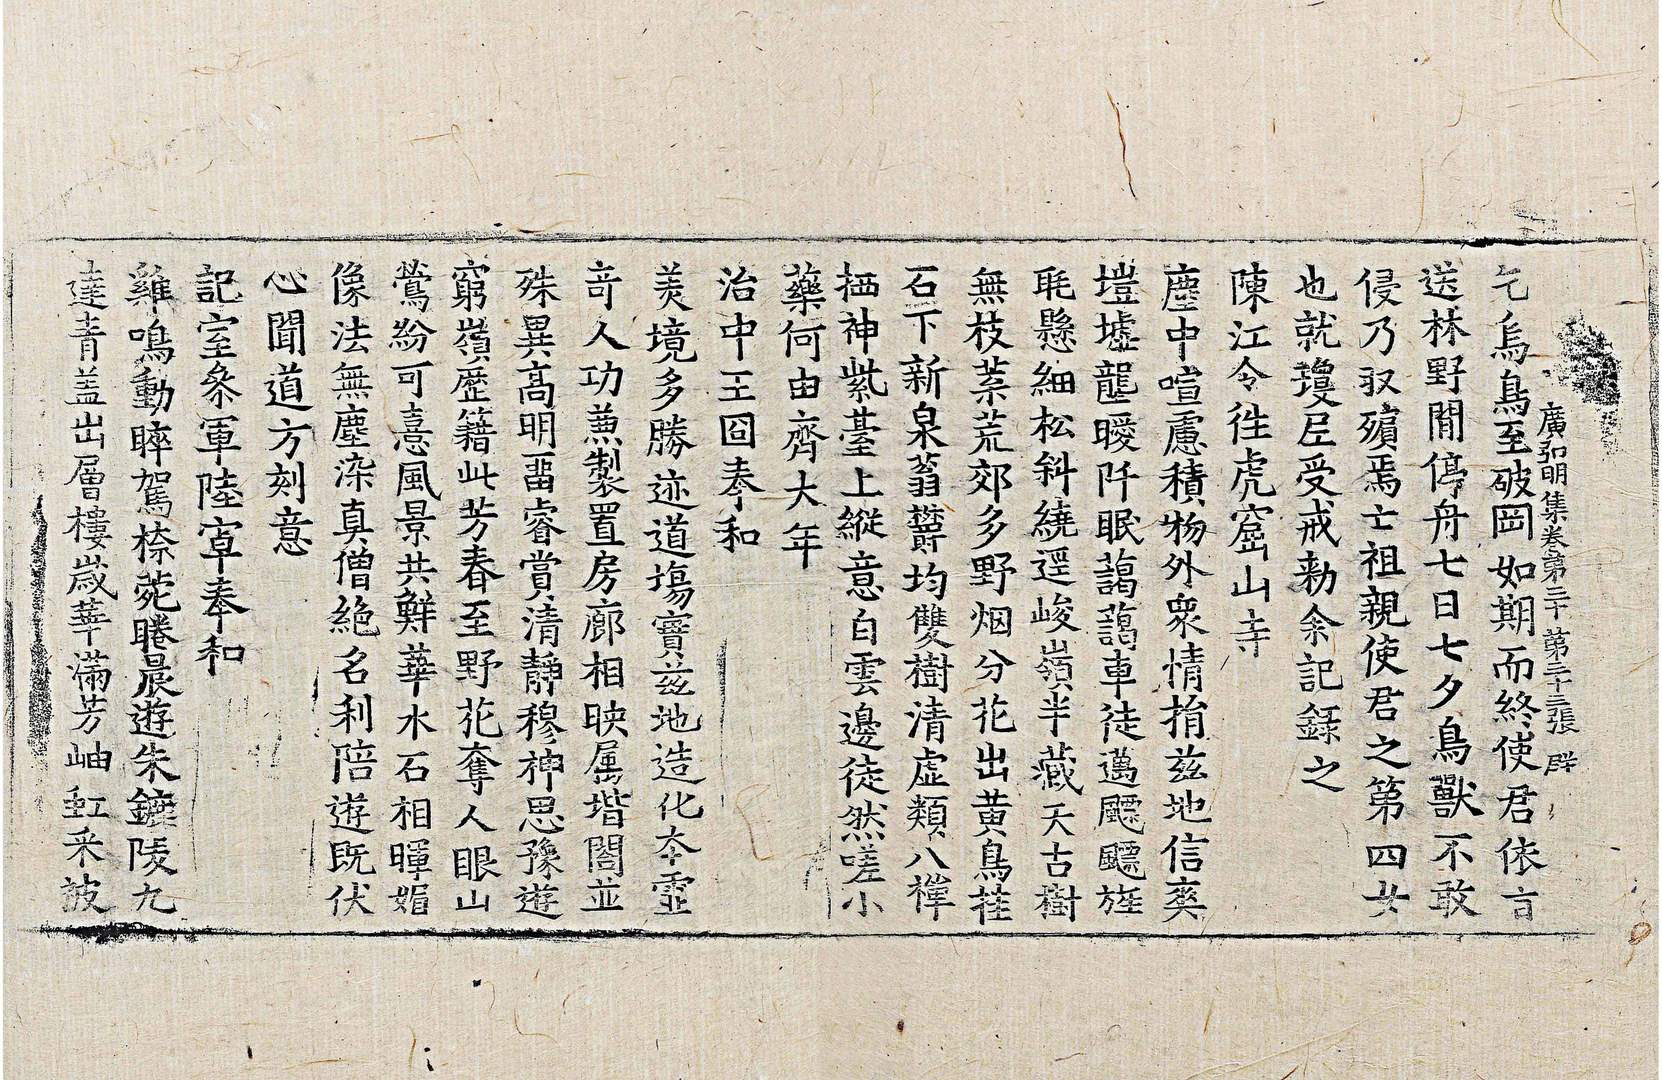 廣弘明集卷第三十第三十三張 群
乞烏鳥至破岡如期而終使君依言
送林野間停舟七日七夕鳥獸不敢
侵乃収殯焉亡祖親使君之第四女
也就瓊尼受戒勑余記錄之
陳江令徃虎窟山寺
塵中喧慮積物外衆情捐茲地信爽
塏墟壟曖阡眠藹藹車徒邁飃飃旌
毦懸細松斜繞逕峻嶺半藏天古樹
無枝葉荒郊多野烟分花出黃鳥挂
石下新泉蓊欝均雙樹清虛類八禪
栖神紫臺上縱意白雲邊徒然嗟小
藥何由齊大年
治中王囧奉和
美境多勝迹道場寶茲地造化夲靈
竒人功兼製置房廊相映属堦閣並
殊異高明留睿賞清靜穆神思豫遊
窮嶺歷籍此芳春至野花奪人眼山
鶯紛可憙風景共鮮華水石相暉媚
像法無塵染真僧絶名利陪遊既伏
心聞道方刻意
記室叅軍陸䍐奉和
雞鳴動睟駕㮈菀睠晨遊朱鑣陵九
達青盖出層樓歲華滿芳岫虹采被